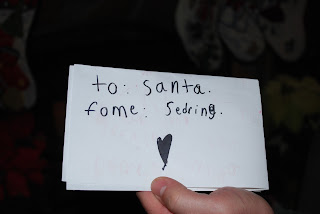 to: santa.
fome: Sedring.